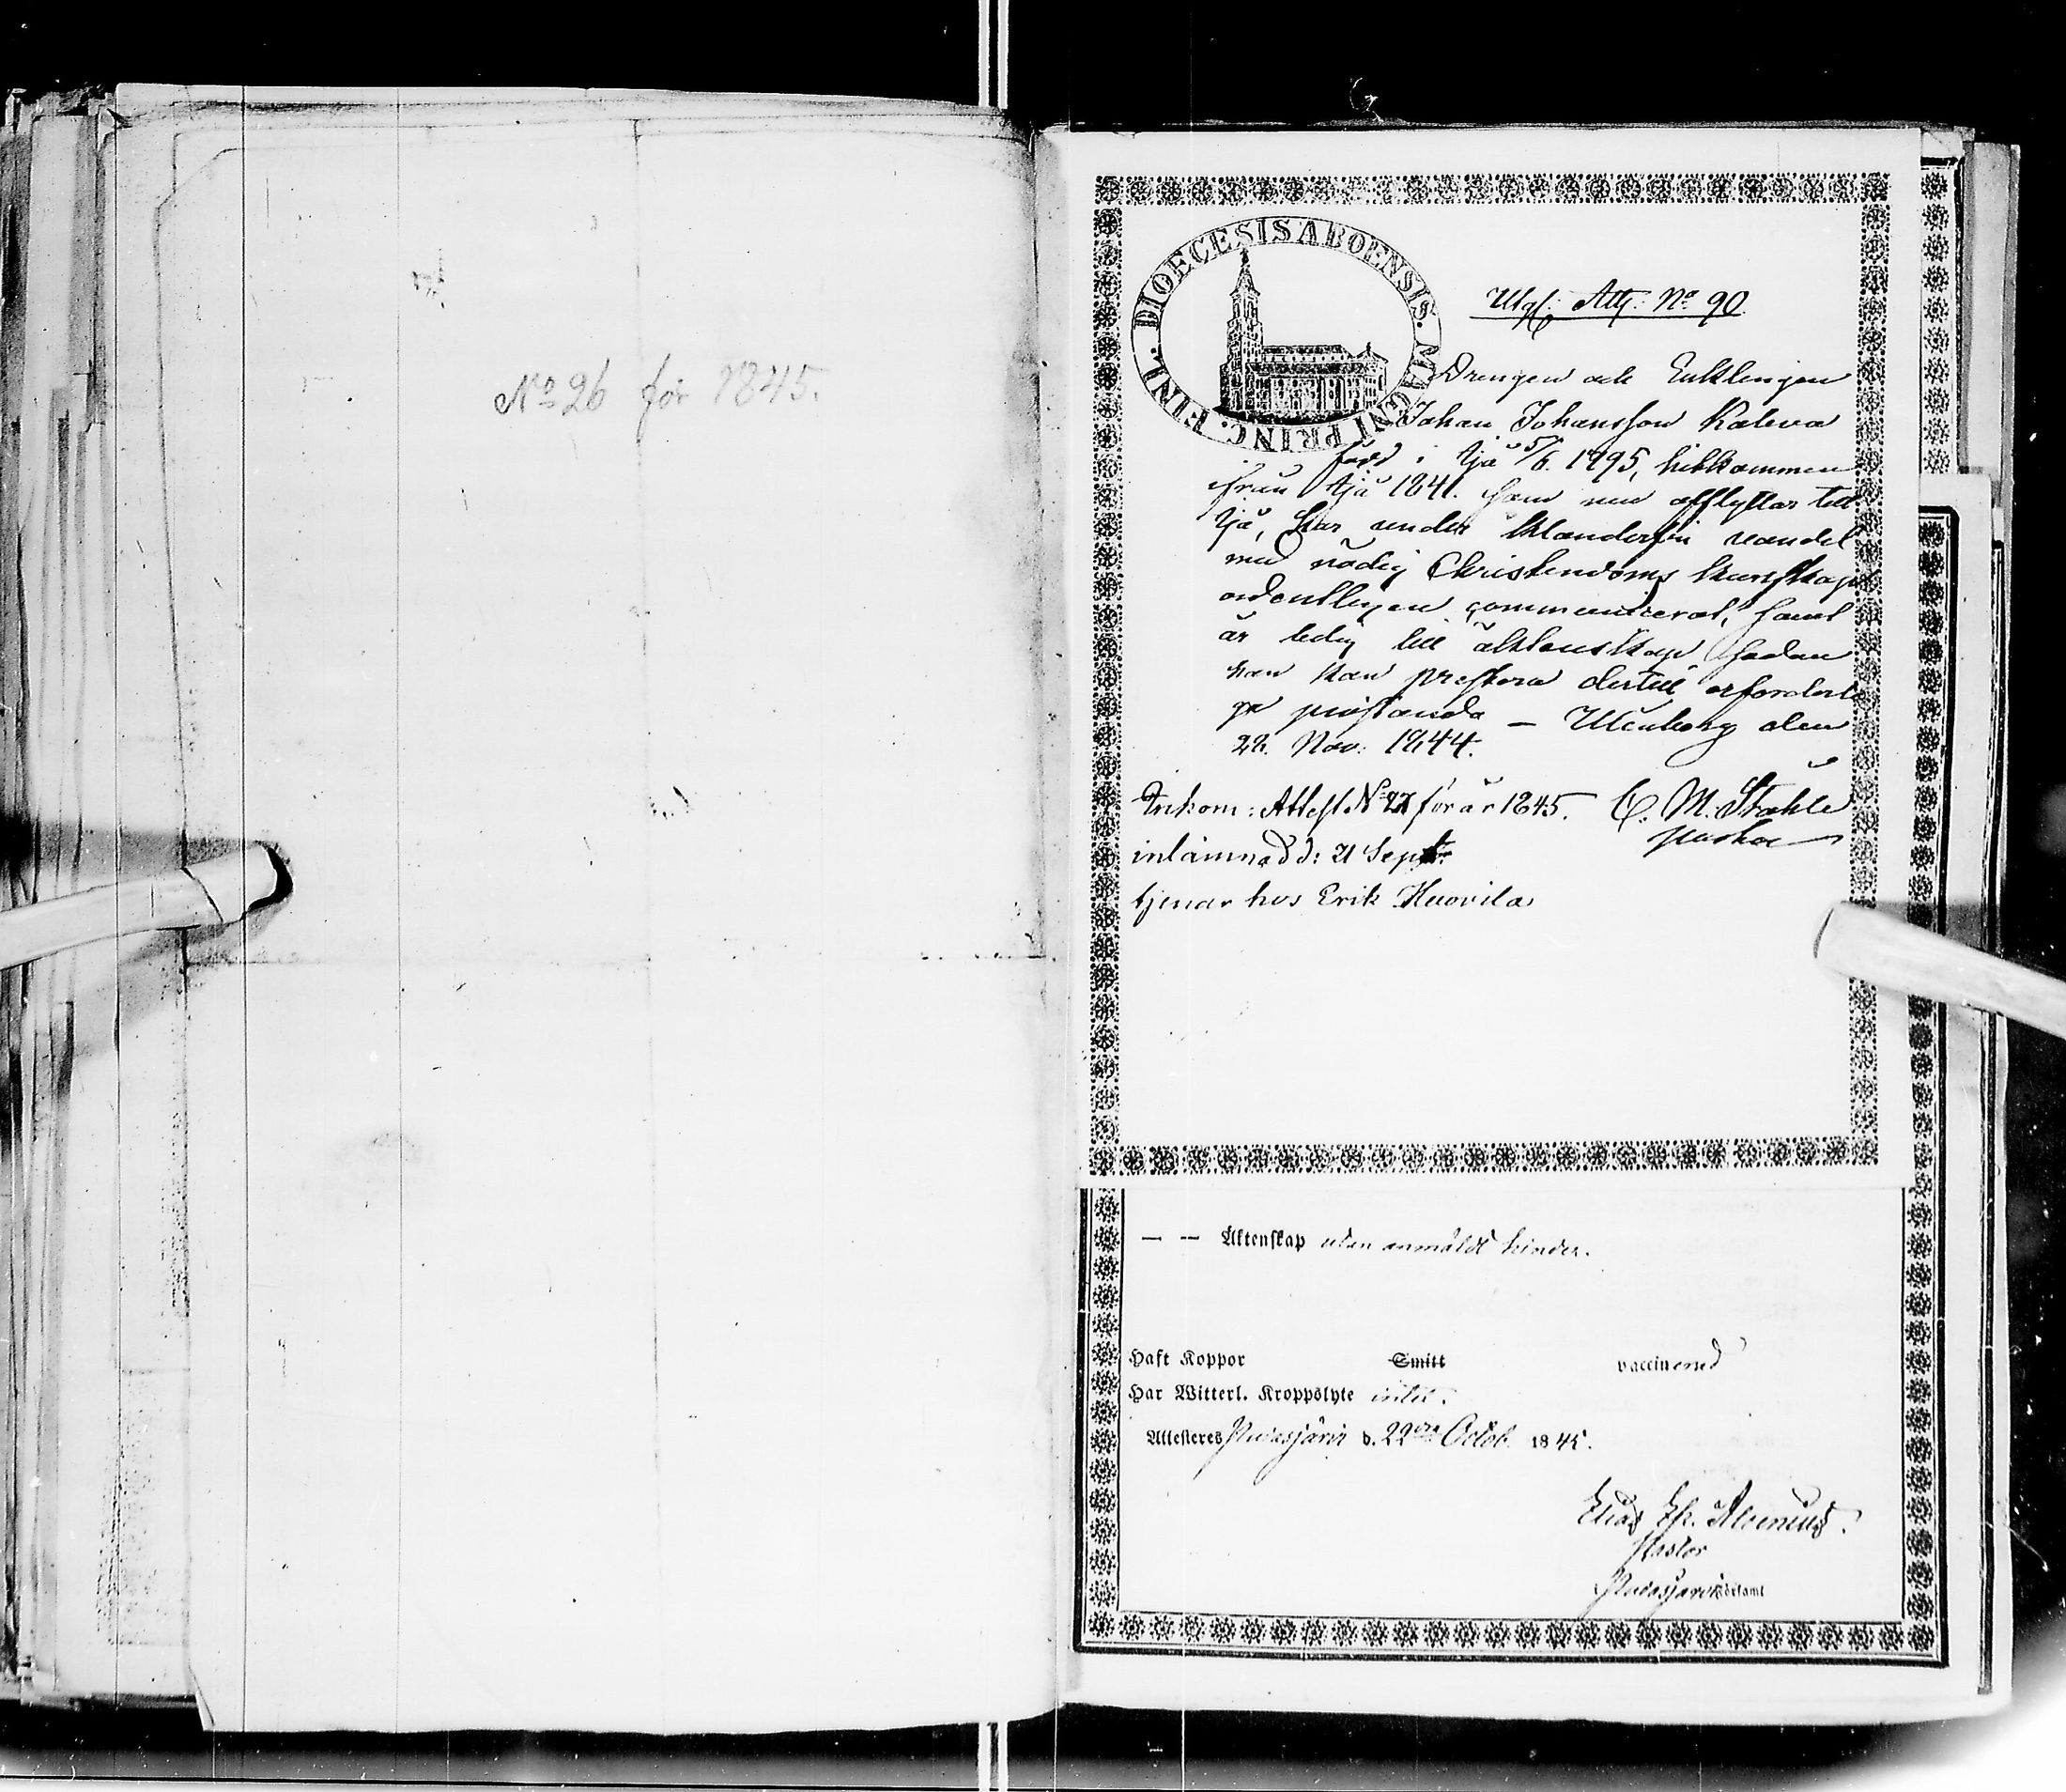 No 26 för 1845.
DIOECESIS ABOENSIS. MAGNI PRINC. FINL.
Utgf: Att: No 90.
Drengen och Enklingen
Johan Johansson Kaleva
född i Ijå 5/6. 1795, hitkommen
ifrån Ijå 1841. som nu afflyttar till
Ijå, har under klanderfri vandel
med nödig Christendoms kunskap
ordentligen communicerat, samt
är ledig till äktenskap sedan
han kan prestera dertill erforderli
ga præstanda — Uleåborg den
22. Nov: 1844.
C. M. Ståhle
Inkom: Attest No för år 1845.
inlämnad d: 21 Sept:
tjenar hos Erik Huovila
— — Äktenskap utan anmäldt hinder.
Haft Koppor Smitt vaccinerad
Har Witterl. Kroppslyte intet.
Attesteres Pudasjärvi d. 22 Octob. 1845.
Elias
Pastor
Pudasjärvi